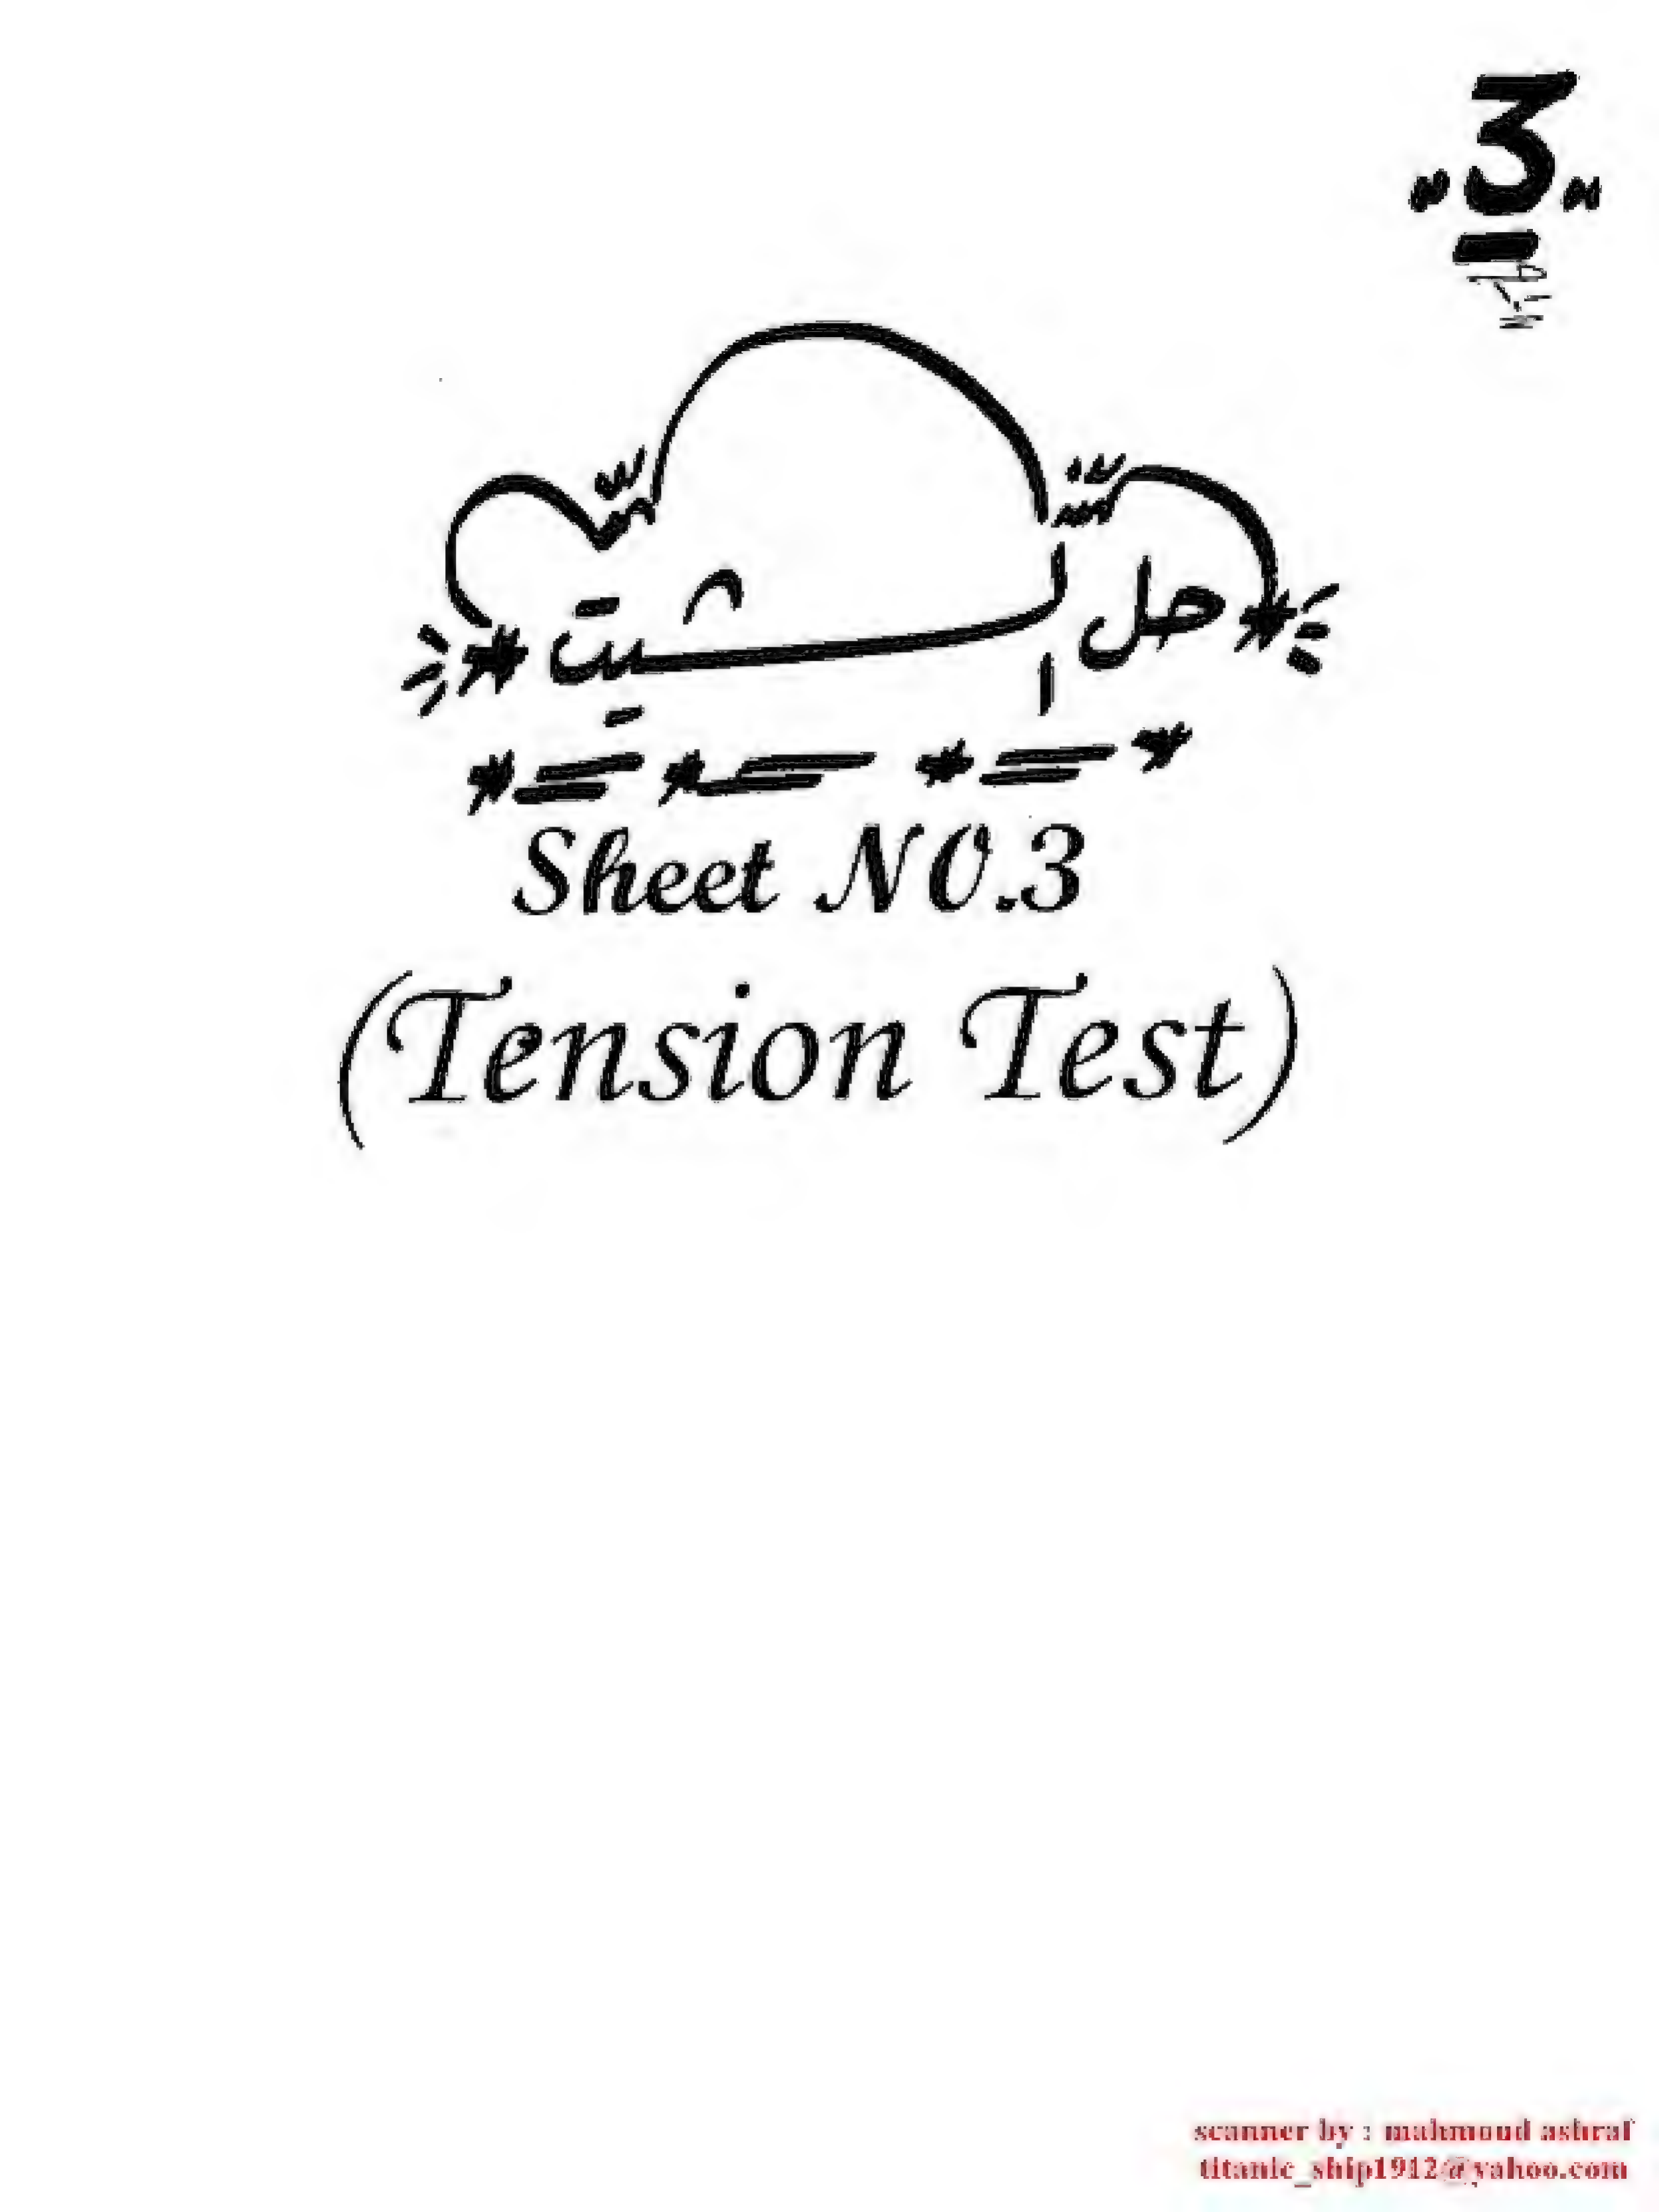 "3"
حل الشيت
Sheet NO.3
(Tension Test)
scanner by : mahmoud ashraf
titanic_ship1912@yahoo.com